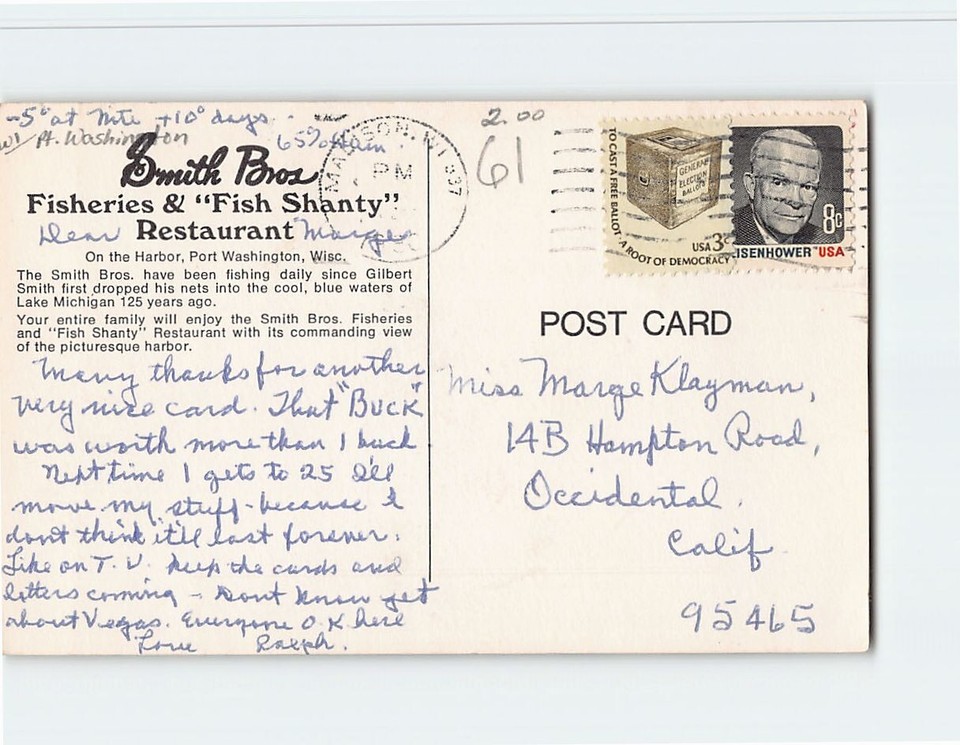 -5° at Nite +10° days.
WI Pt. Washington
65% Hum.
2.00
61
MADISON, WI 537
PM
TO CAST A FREE BALLOT · A ROOT OF DEMOCRACY
GENERAL
ELECTION
BALLOTS
USA 3c
8c
EISENHOWER · USA
Smith Bros
Fisheries & “Fish Shanty”
Restaurant
Dear Marge
On the Harbor, Port Washington, Wisc.
The Smith Bros. have been fishing daily since Gilbert
Smith first dropped his nets into the cool, blue waters of
Lake Michigan 125 years ago.
Your entire family will enjoy the Smith Bros. Fisheries
and “Fish Shanty” Restaurant with its commanding view
of the picturesque harbor.
Many thanks for another
very nice card. That "Buck"
was worth more than 1 buck
Next time I gets to 25 I'll
move my stuff - because I
dont think it'll last forever.
Like on T. V. keep the cards and
letters coming - Dont know yet
about Vegas. Everyone O K here
Love Ralph.
POST CARD
Miss Marge Klayman,
14B Hampton Road,
Occidental.
Calif
95465